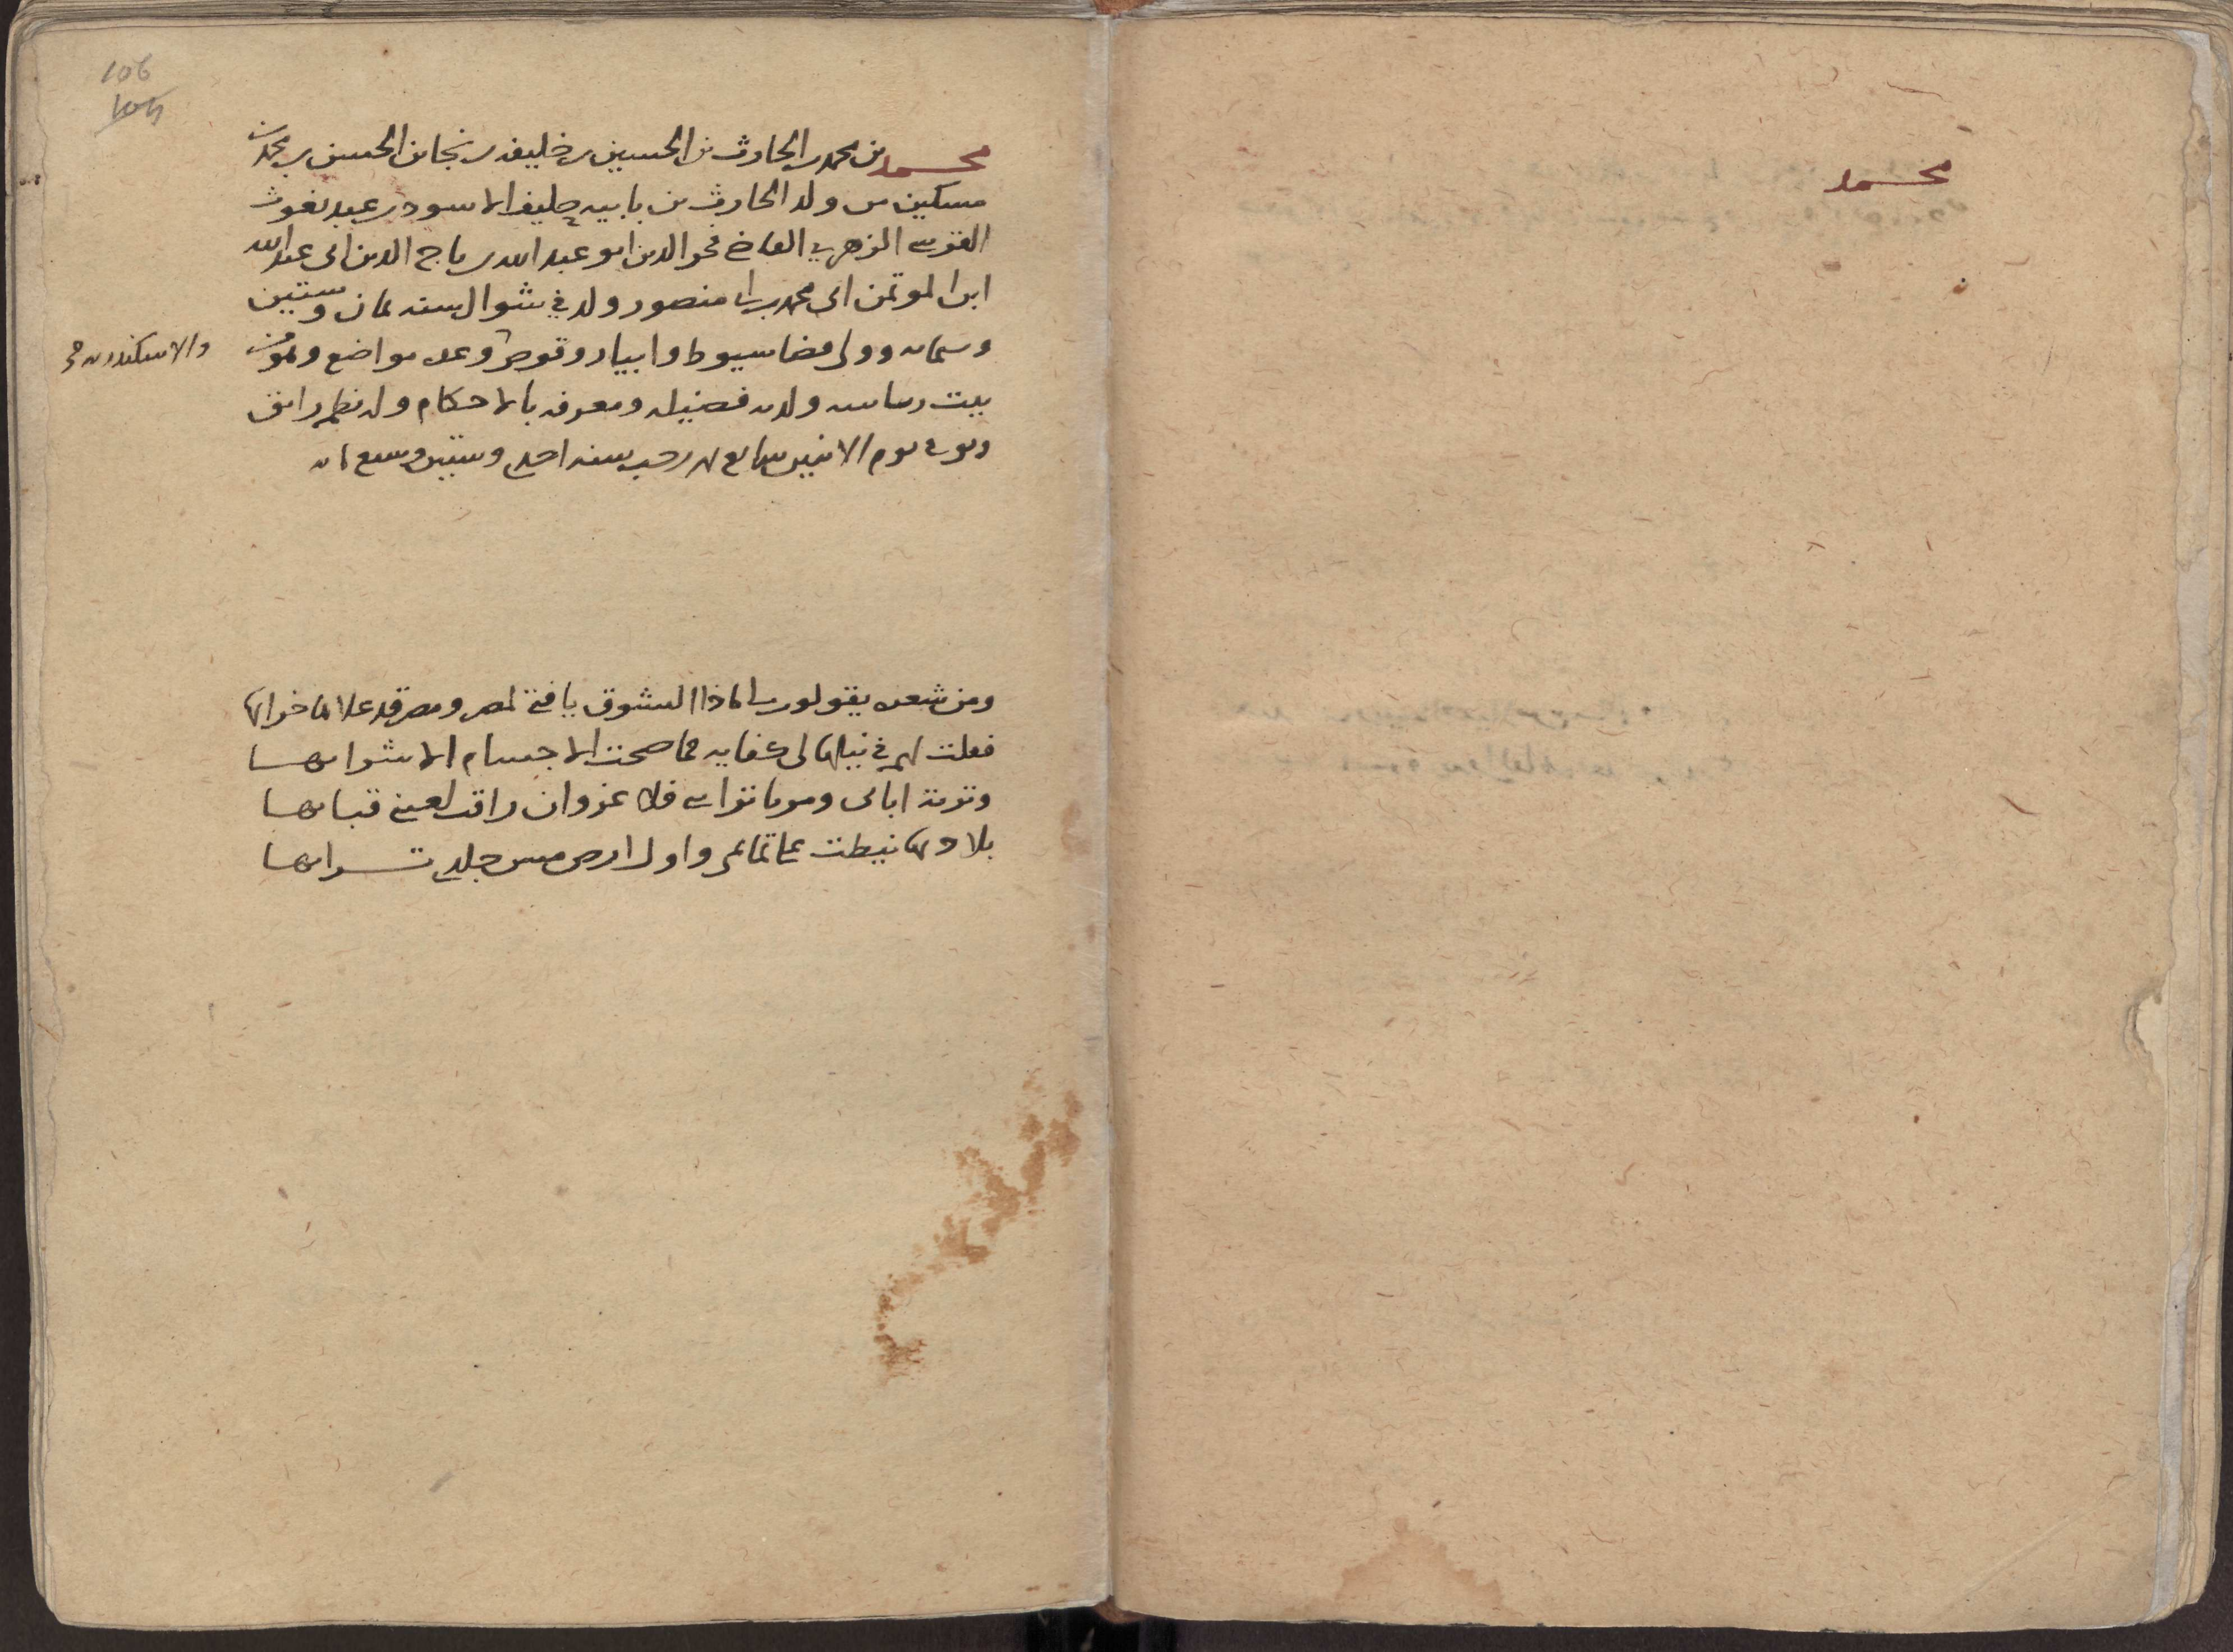 محمد
106
104
محمد بن محمد بن الحارث بن الحسين بن خليفه بن نجا بن الحسن بن محمد بن
مسكين من ولد الحارث بن بابيه حليف الاسود بن عبد يغوث
القرسى الزهرى القاضى فخر الدين ابو عبد الله بن تاج الدين ابى عبد الله
ابن الموتمن ابى محمد بن ابى منصور ولد فى شوال سنه ثمان وستين
وستمايه وولى قضا سيوط وابيار وقوص وعده مواضع وهو من
والاسكندريه صح
بيت رياسه ولديه فضيله ومعرفه بالاحكام وله نظم رايق
وتوفى يوم الاثنين سابع رجب سنه احدى وستين وسبع مايه
ومن شعره يقولون لى ماذا التشوق يا فتى لمصر ومصر قد علا ها خرابها
فقلت لهم فى نيلها لى كفايه فما صحت الاجسام الا شرابها
وتربة ابائى وموتا تراى فلا غزوان راقت لعينى قبابها
بلاد بها نيطت على تمايمى واول ارض مس جلدى ترابها